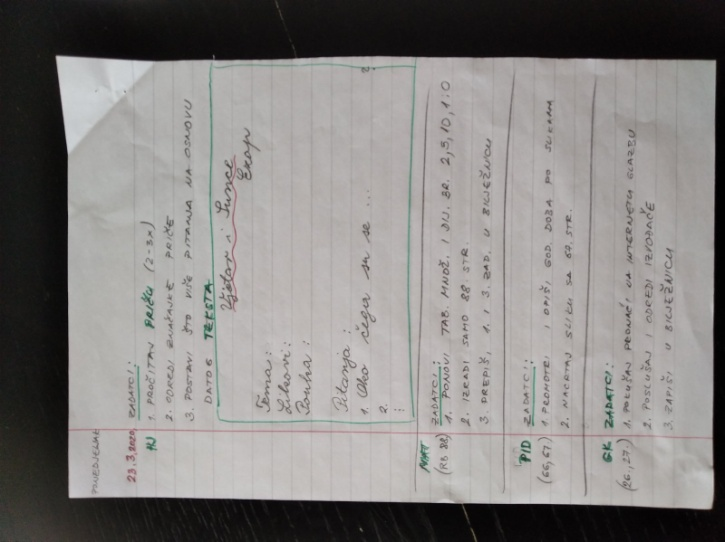 PONEDJELJAK
23.3.2020. ZADATCI:
HJ 1. PROČITAJ PRIČU (2-3x)
2. ODREDI ZNAČAJKE PRIČE
3. POSTAVI ŠTO VIŠE PITANJA NA OSNOVU
DATOG TEKSTA
Vjetar i Sunce
Ezop
Tema:
Likovi:
Pouka:
Pitanja:
1. Oko čega su se ... ?
2.
:
MAT ZADATCI:
(RB 88) 1. PONOVI TAB. MNOŽ. I DIJ. BR. 2,5,10,1 i 0
2. IZRADI SAMO 88. STR.
3. PREPIŠI 1. I 3. ZAD. U BILJEŽNICU
PID ZADATCI:
(66,67) 1. PROMOTRI I OPIŠI GOD. DOBA PO SLIKAMA
2. NACRTAJ SLIKU SA 67. STR.
GK ZADATCI:
(26.,27.) 1. POKUŠAJ PRONAĆI NA INTERNETU GLAZBU
2. POSLUŠAJ I ODREDI IZVOĐAČE
3. ZAPIŠI U BILJEŽNICU